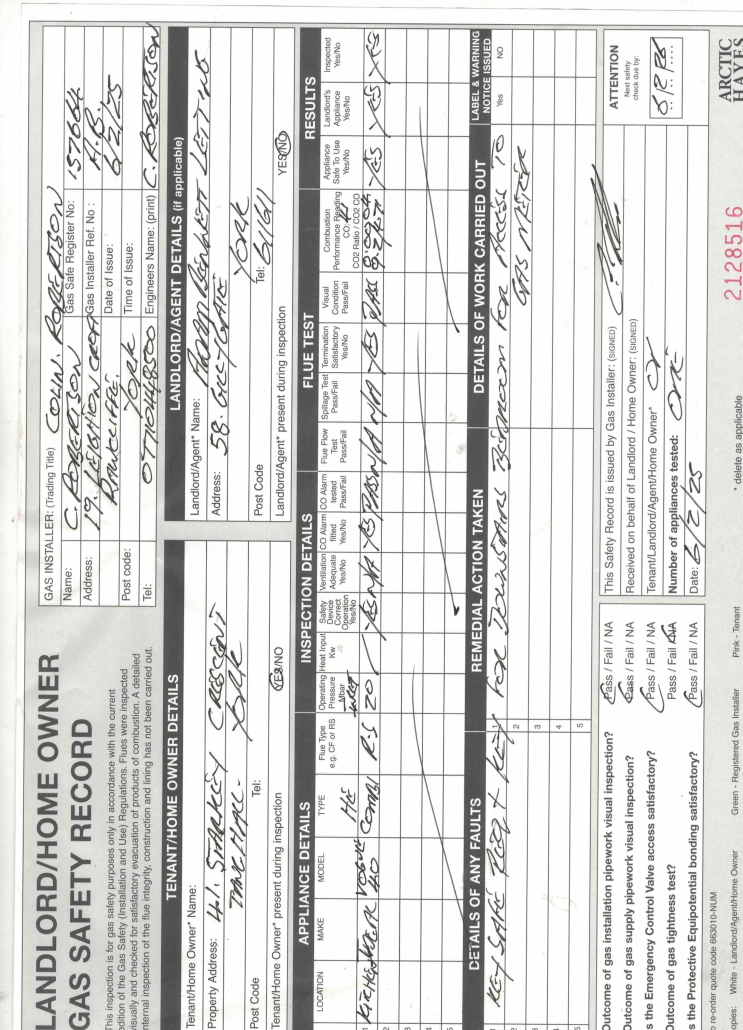 LANDLORD/HOME OWNER
GAS SAFETY RECORD
This inspection is for gas safety purposes only in accordance with the current
edition of the Gas Safety (Installation and Use) Regulations. Flues were inspected
visually and checked for satisfactory evacuation of products of combustion. A detailed
internal inspection of the flue integrity, construction and lining has not been carried out.
GAS INSTALLER: (Trading Title) COLIN ROBERTSON
Name: C. ROBERTSON
Gas Safe Register No: 157664
Address: 19. LEIGHTON CROFT
Gas Installer Ref. No :
RAWCLIFFE.
Date of Issue: 6/2/25
Post code: YORK
Time of Issue:
Tel: Engineers Name: (print) C. ROBERTSON
TENANT/HOME OWNER DETAILS
Tenant/Home Owner* Name:
Property Address: 41. STARKEY CRESCENT
TANG HALL. YORK
Post Code Tel:
Tenant/Home Owner* present during inspection YES/NO
LANDLORD/AGENT DETAILS (if applicable)
Landlord/Agent* Name: ADAM BENNETT LETTING
Address: 58. GILLYGATE
YORK
Post Code Tel: 611611
Landlord/Agent* present during inspection YES/NO
APPLIANCE DETAILS
INSPECTION DETAILS
FLUE TEST
RESULTS
LOCATION MAKE MODEL TYPE Flue Type e.g. CF or RS Operating Pressure Mbar Heat Input Kw Safety Device Correct Operation Yes/No Ventilation Adequate Yes/No CO Alarm fitted Yes/No CO Alarm tested Pass/Fail Flue Flow Test Pass/Fail Spillage Test Pass/Fail Termination Satisfactory Yes/No Visual Condition Pass/Fail Combustion Performance Reading CO: CO2 Ratio / CO2 CO Appliance Safe To Use Yes/No Landlord's Appliance Yes/No Inspected Yes/No
1 KITCHEN VOGUE 40 COMBI HE R-S 20 YES N/A YES PASS N/A N/A YES PASS YES YES YES
2
3
4
5
DETAILS OF ANY FAULTS
REMEDIAL ACTION TAKEN
DETAILS OF WORK CARRIED OUT
LABEL & WARNING NOTICE ISSUED
Yes NO
1 KEY SAFE KEY FOR DOWNSTAIRS BEDROOM FOR ACCESS TO
2 GAS METER
3
4
5
Outcome of gas installation pipework visual inspection? Pass / Fail / NA
Outcome of gas supply pipework visual inspection? Pass / Fail / NA
Is the Emergency Control Valve access satisfactory? Pass / Fail / NA
Outcome of gas tightness test? Pass / Fail / NA
Is the Protective Equipotential bonding satisfactory? Pass / Fail / NA
This Safety Record is issued by Gas Installer: (SIGNED)
Received on behalf of Landlord / Home Owner: (SIGNED)
Tenant/Landlord/Agent/Home Owner*
Number of appliances tested: ONE
Date: 6/2/25
ATTENTION
Next safety
check due by:
5/2/26
To re-order quote code 663010-NUM
Copies: White - Landlord/Agent/Home Owner Green - Registered Gas Installer Pink - Tenant * delete as applicable
2128516
ARCTIC
HAYES